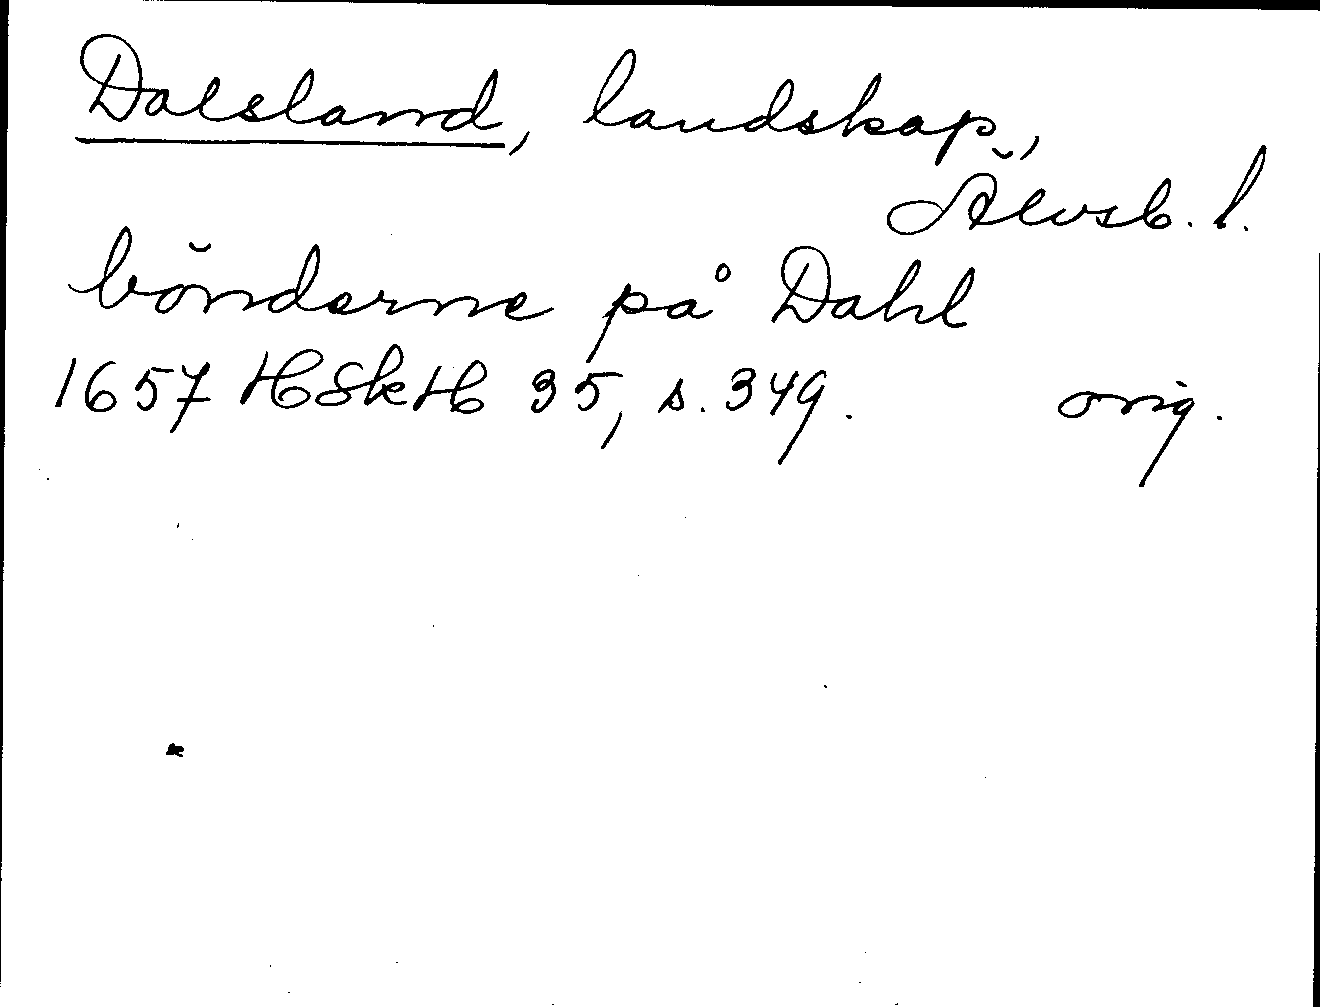 Dalsland, landskap,
Älvsb. l.
bönderne på Dahl
1657 HSkH 35, s. 349. orig.